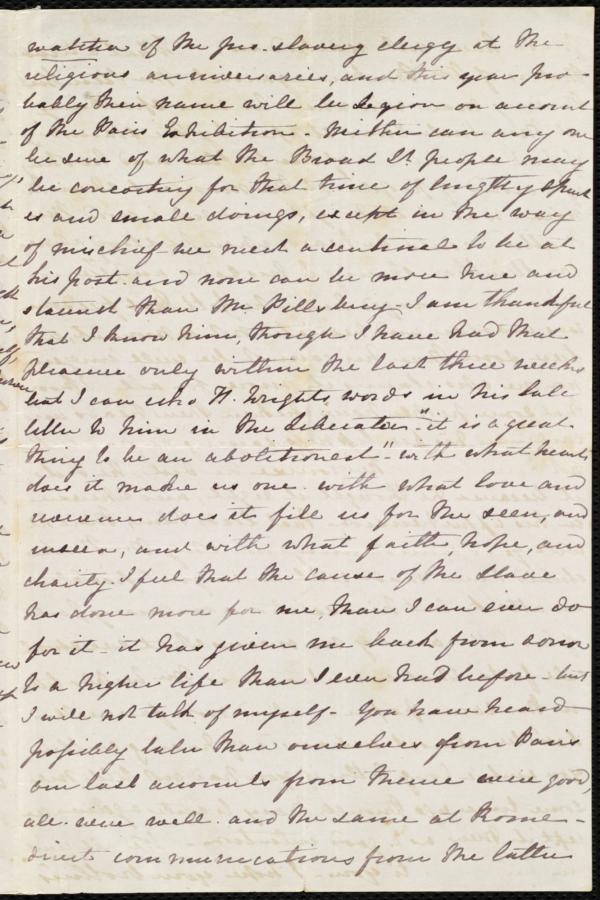 watcher of the pro-slavery clergy at the
religious anniversaries, and this year pro-
bably their name will be Legion on account
of the Paris Exhibition. Neither can any one
be sure of what the Broad St. people may
be concocting for that time of lengthy speech
es and small doings, except in the way
of mischief - we need a sentinel to be at
his post and none can be more true and
staunch than Mr Pillsbury - I am thankful
that I know him, though I have had that
pleasure only within the last three weeks
but I can echo H. Wright's words in his late
letter to him in the Liberator - "it is a great
thing to be an abolitionist" - with what hearts
does it make us one. with what love and
reverence does it fill us for the seen, and
unseen, and with what faith, hope, and
charity. I feel that the cause of the slave
has done more for me, than I can ever do
for it - it has given me back from sorrow
to a higher life than I ever had before - but
I will not talk of myself - You have heard
possibly later than ourselves from Paris
our last accounts from thence were good,
all were well. and the same at Rome -
direct communications from the latter